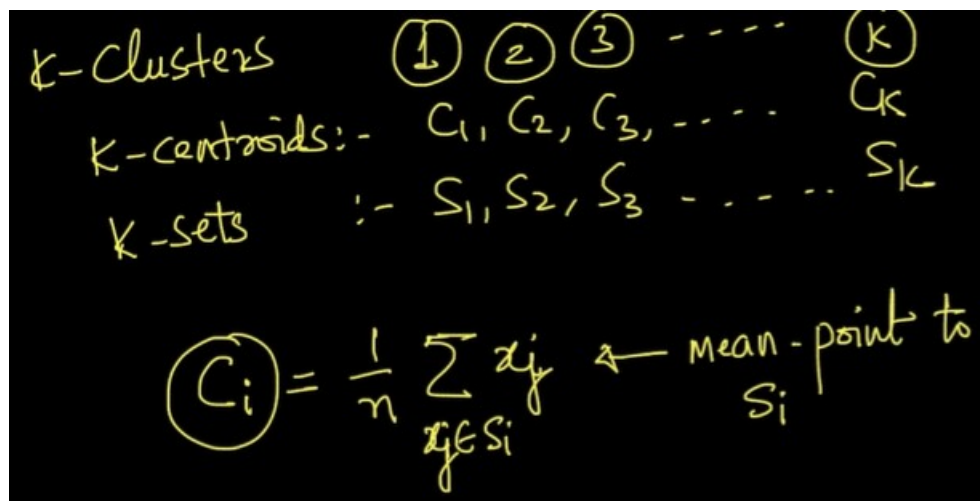 K-Clusters 1 2 3 ---- K
K-centroids:- C1, C2, C3, ---- CK
K-sets :- S1, S2, S3 ------ SK
Ci = 1/n ∑ xj ← mean-point to
xj∈Si Si